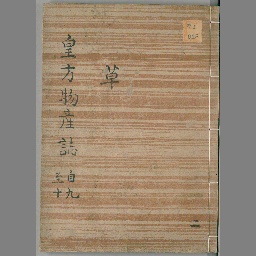 草
皇方物産誌
自九
至十
二